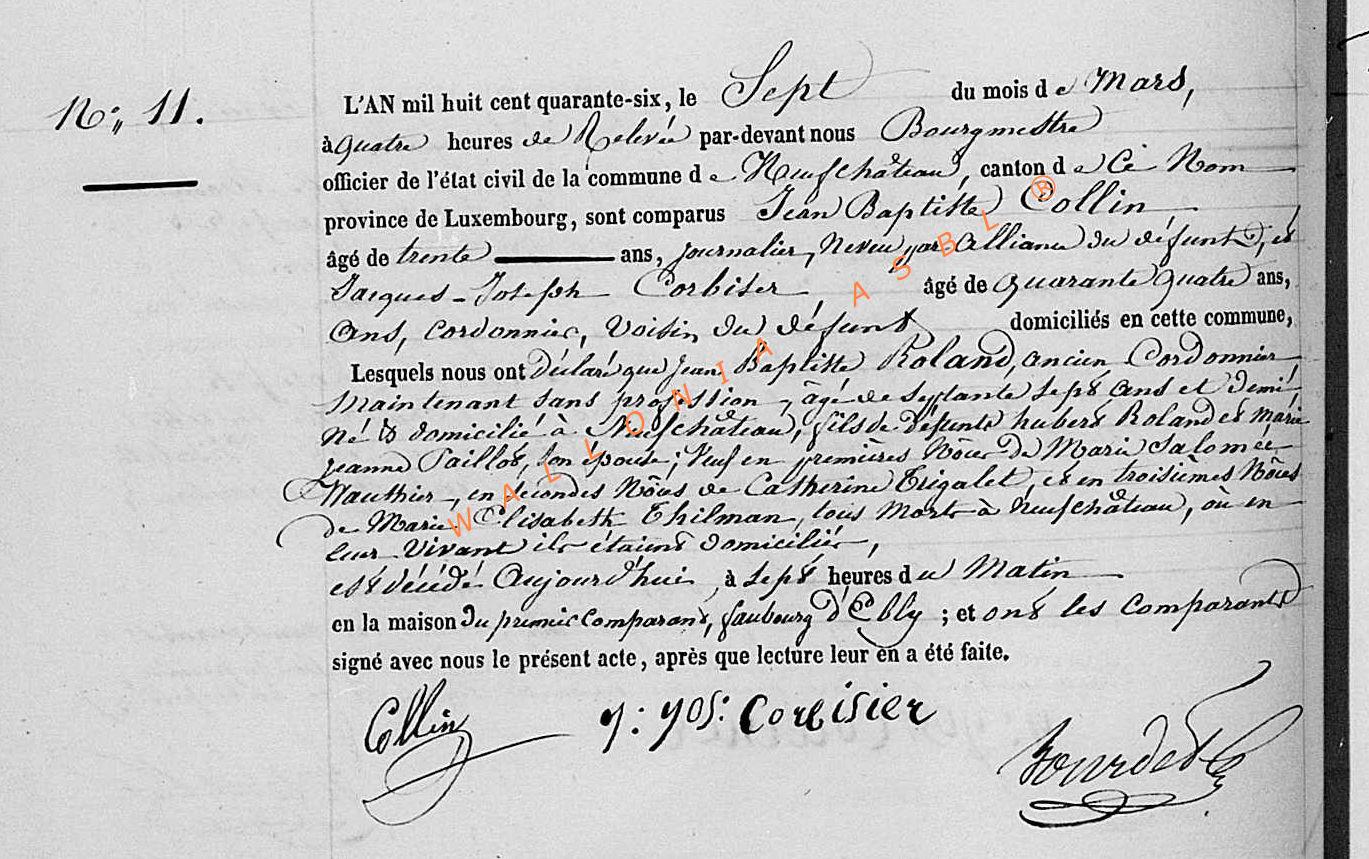 N°. 11.
L'AN mil huit cent quarante-six, le Sept du mois de Mars,
à quatre heures de Relevée par-devant nous Bourgmestre
officier de l'état civil de la commune de Neufchâteau, canton de Cè Nom
province de Luxembourg, sont comparus Jean Baptiste Collin
âgé de trente ans, journalier, Neveu par alliance du défunt, et
Jacques-Joseph Corbisier, âgé de quarante quatre ans,
ans, cordonnier, Voisin du défunt domiciliés en cette commune,
Lesquels nous ont Déclaré que Jean Baptiste Roland, ancien Cordonnier
Maintenant sans profession, âgé de septante sept ans et demi
né et domicilié à Neufchâteau, fils de défunts hubert Roland et marie
jeanne Paillot, son épouse; Veuf en premières Nôces de Marie Salomée
Wauthier, en secondes Nôces de Catherine Trigalet, et en troisièmes Nôces
de Marie Elisabeth Thilman, tous morts à Neufchâteau, où en
leur Vivant ils étaient domiciliés,
est décédé Aujourd'hui à sept heures du Matin
en la maison du premier Comparant, faubourg d'Ebly ; et ont les comparants
signé avec nous le présent acte, après que lecture leur en a été faite.
Collin J: Jos: Corbisier Bourdet
WALLONIA ASBL ®